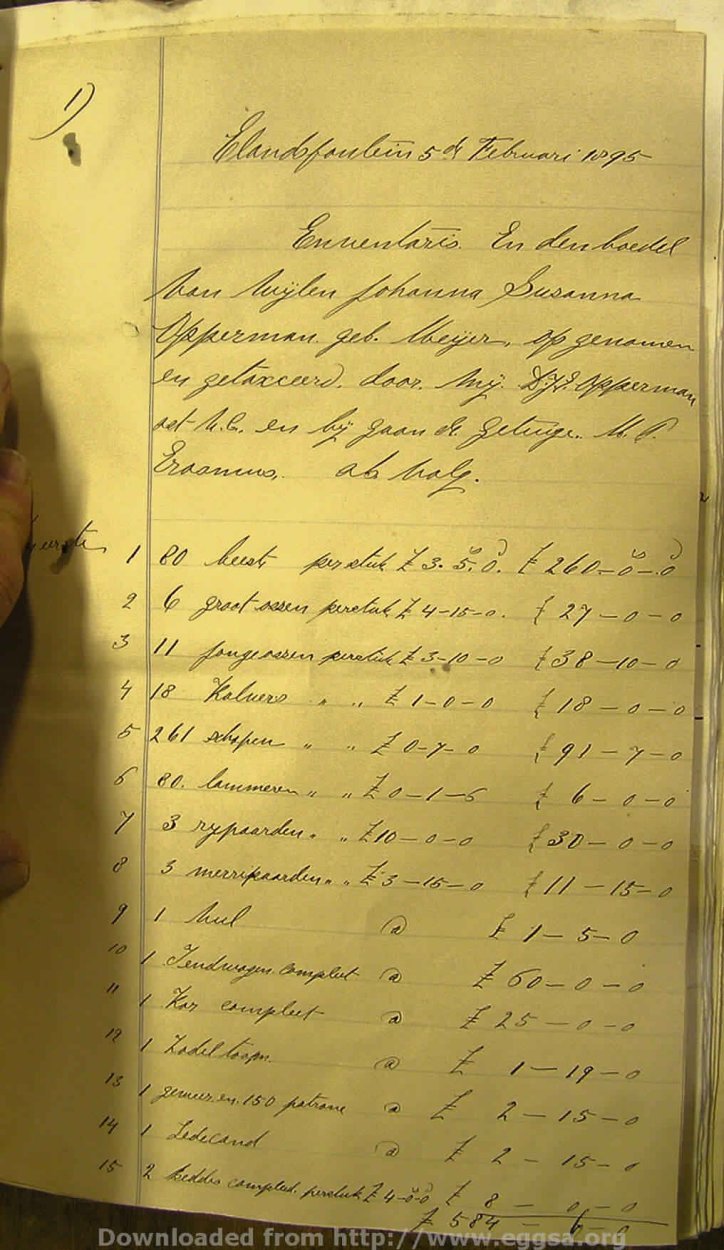 1)
Elandsfontein 5 de Februari 1895
Enventaris. En den boedel
van wijlen Johanna Susanna
Opperman. geb. Meijer, op genomen
en getaxceerd. door. mij. D.J.E. Opperman
en bij gaan de getuige. M. P.
Erasmus. als volg.
1 80 beest per stuk £ 3. 5. 0. £ 260 - 0 - 0
2 6 groot ossen perstuk £ 4-15-0. £ 27 - 0 - 0
3 11 jongeossen perstuk £ 3-10-0 £ 38 - 10 - 0
4 18 Kalvers " " £ 1-0-0 £ 18 - 0 - 0
5 261 schapen " " £ 0-7-0 £ 91 - 7 - 0
6 80. lammeren " " £ 0-1-6 £ 6 - 0 - 0
7 3 rypaarden " " £ 10-0-0 £ 30 - 0 - 0
8 3 merripaarden " " £ 3-15-0 £ 11 - 15 - 0
9 1 Mul @ £ 1 - 5 - 0
10 1 Tendwagen compleet @ £ 60 - 0 - 0
11 1 Kar compleet @ £ 25 - 0 - 0
12 1 Zadel toom @ £ 1 - 19 - 0
13 1 geweer en 150 patrone @ £ 2 - 15 - 0
14 1 @ £ 2 - 15 - 0
15 2 beddes compleet perstuk £ 4-0-0 £ 8 - 0 - 0
£ 584 - 6 - 0
Downloaded from http://www.eggsa.org